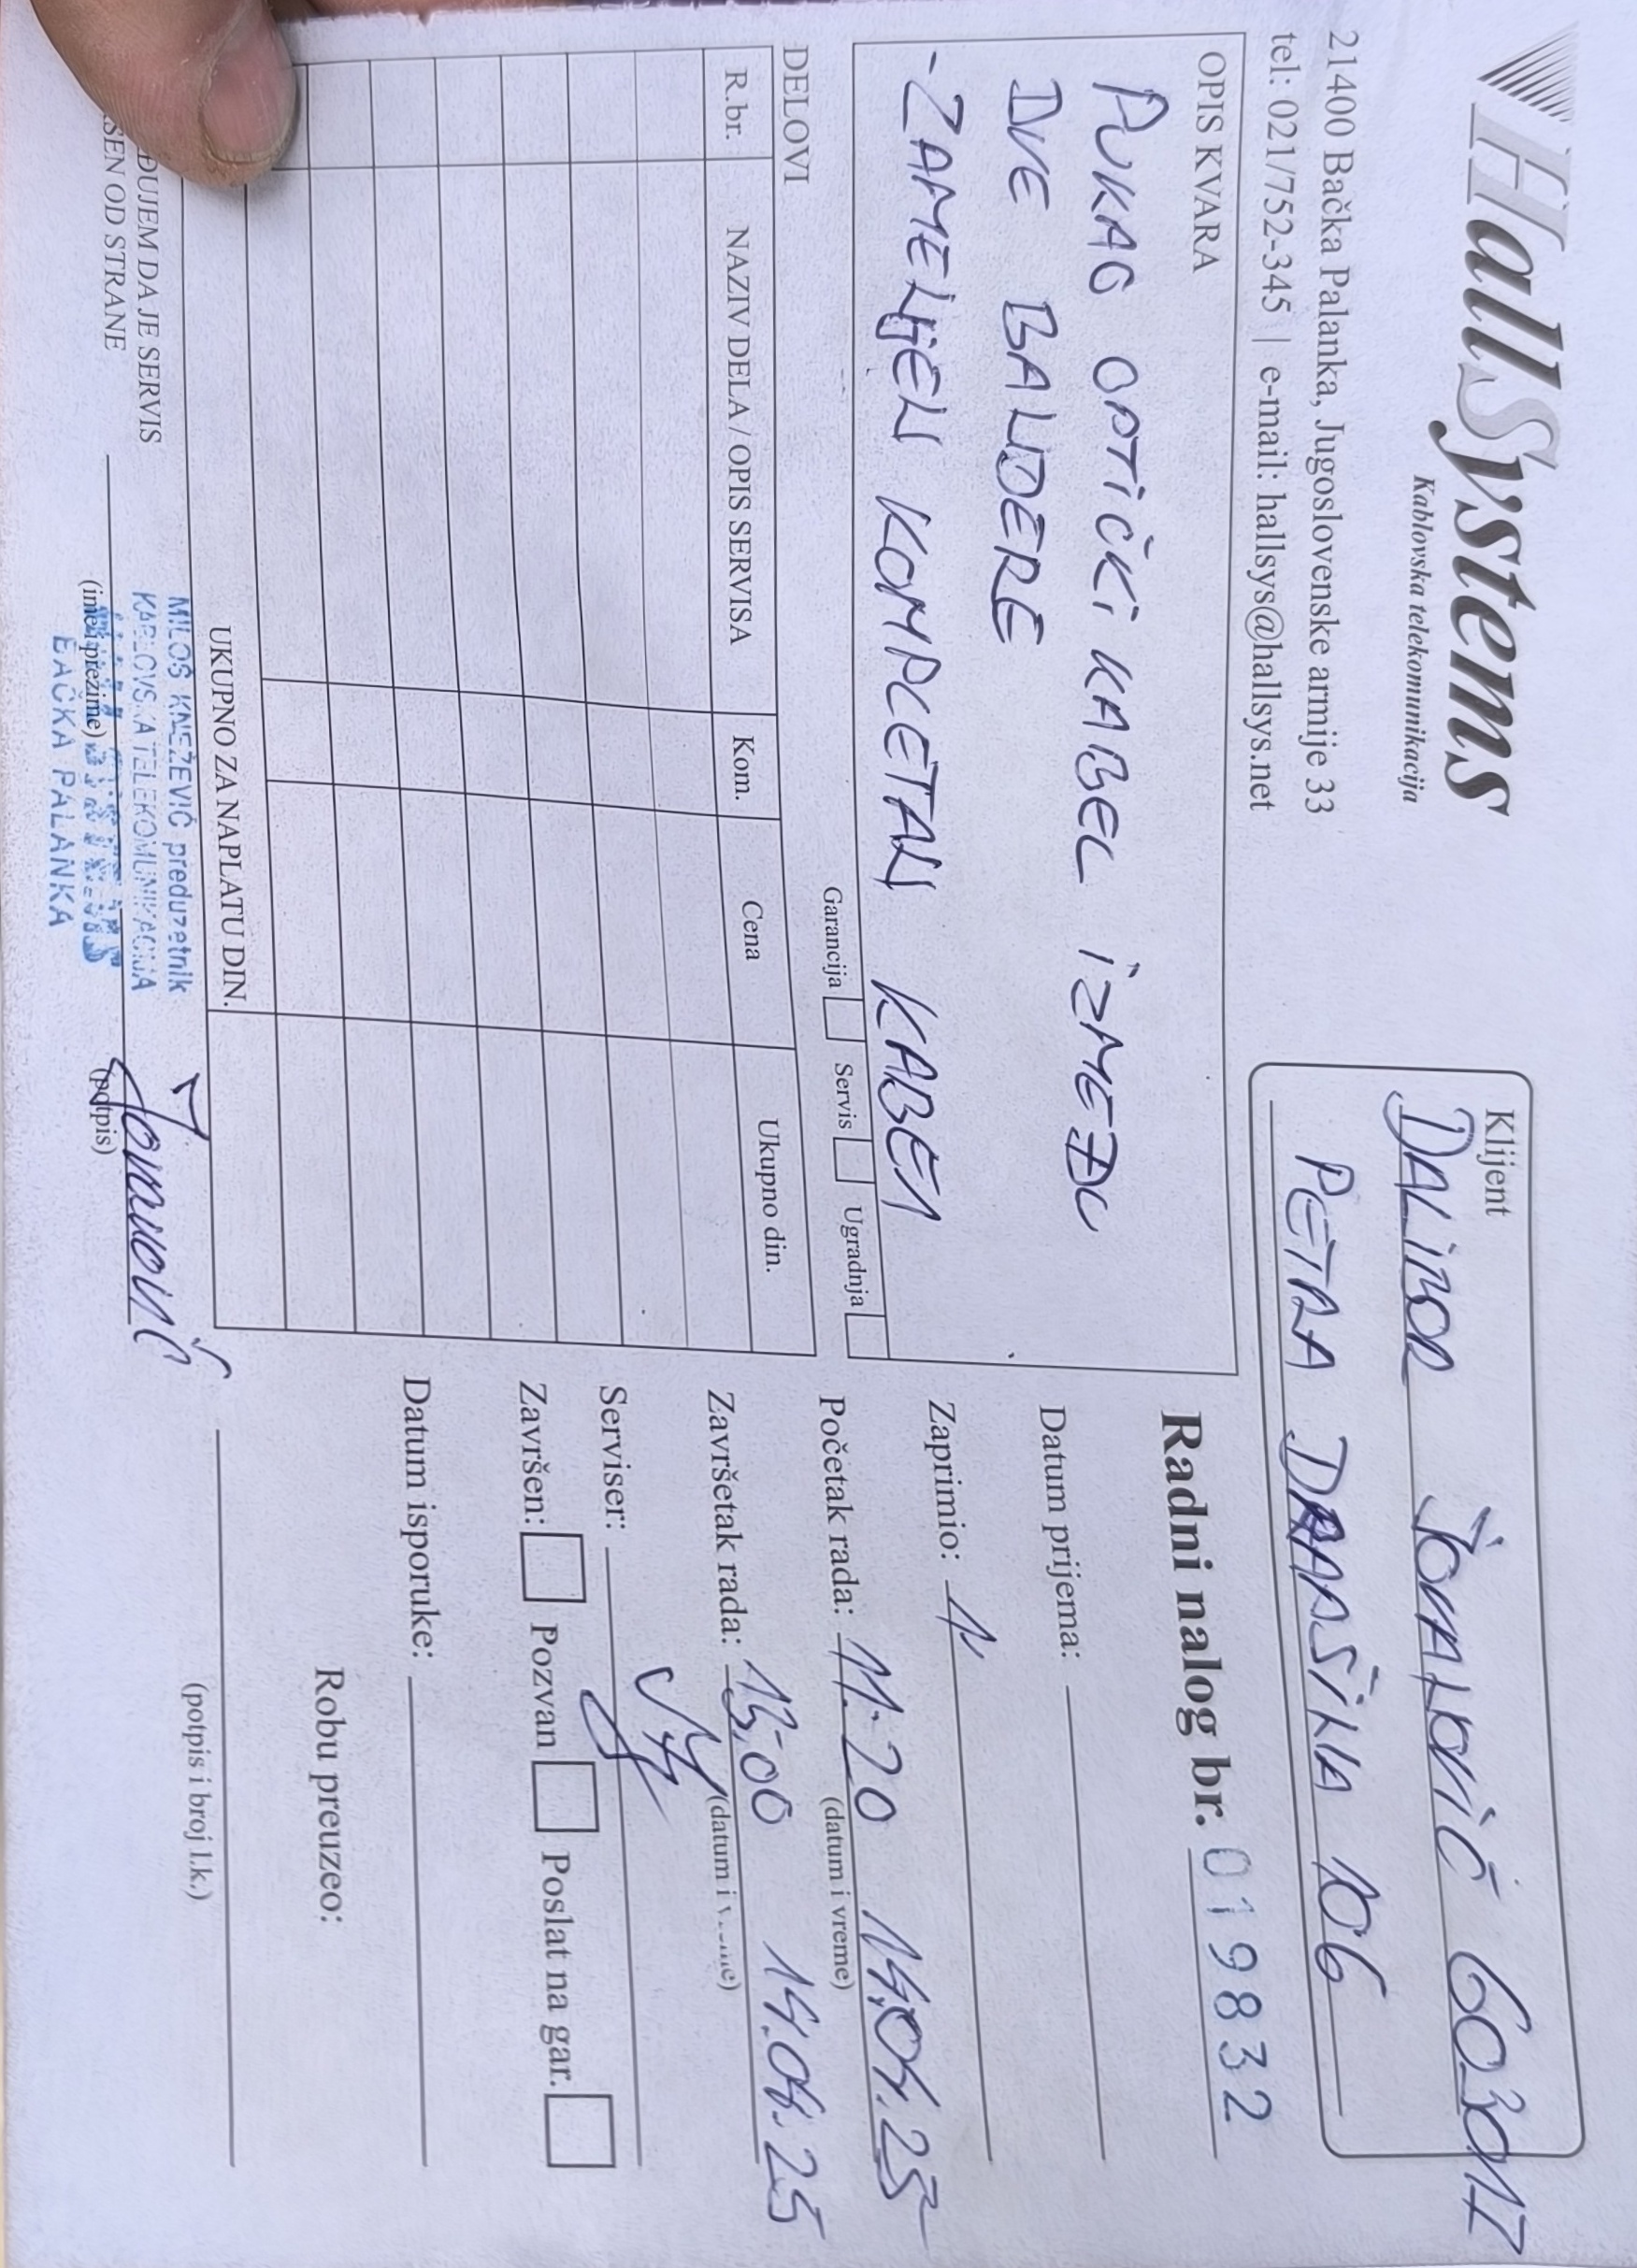 HallSystems
Kablovska telekomunikacija
21400 Bačka Palanka, Jugoslovenske armije 33
tel: 021/752-345 | e-mail: hallsys@hallsys.net
Klijent
DALIBOR TOMANOVIĆ 603017
PETRA DRAPŠINA 106
OPIS KVARA
PUKAO OPTIČKI KABEL IZMEĐU
DVE BANDERE
-ZAMENJEN KOMPLETAN KABEL
Garancija Servis Ugradnja
DELOVI
R.br. NAZIV DELA / OPIS SERVISA Kom. Cena Ukupno din.
UKUPNO ZA NAPLATU DIN.
Radni nalog br. 019832
Datum prijema:
Zaprimio:
Početak rada: 11:20 14.04.25
(datum i vreme)
Završetak rada: 13:00 14.04.25
(datum i vreme)
Serviser:
Završen: Pozvan Poslat na gar.
Datum isporuke:
Robu preuzeo:
(potpis i broj l.k.)
ĐUJEM DA JE SERVIS
ŠEN OD STRANE
(ime i prezime) (potpis)
MILOŠ KNEŽEVIĆ preduzetnik
KABLOVSKA TELEKOMUNIKACIJA
BAČKA PALANKA